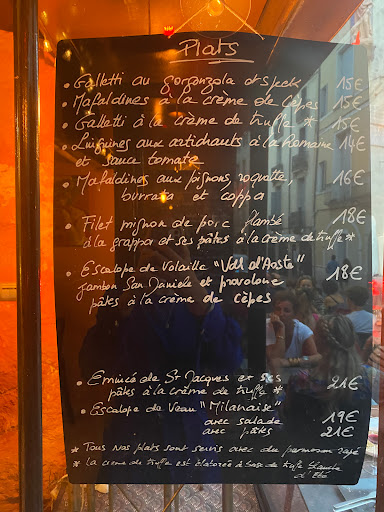 Plats
• Galletti au gorgonzola et speck 15€
• Mafaldines à la crème de Cèpes 15€
• Galletti à la crème de truffe * 15€
• Linguines aux artichauts à la Romaine 14€
et sauce tomate
• Mafaldines aux pignons, roquette, 16€
burrata et coppa
• Filet mignon de porc flambé 18€
à la grappa et ses pâtes à la crème de truffe *
• Escalope de Volaille "Val d'Aoste" 18€
jambon San Daniele et provolone
pâtes à la crème de cèpes
• Emincé de St Jacques et ses
pâtes à la crème de truffe * 21€
• Escalope de Veau "Milanaise"
avec salade 19€
avec pâtes 21€
* Tous nos plats sont servis avec du parmesan rapé
* La crème de truffe est élaborée à base de truffe blanche
d'Eté